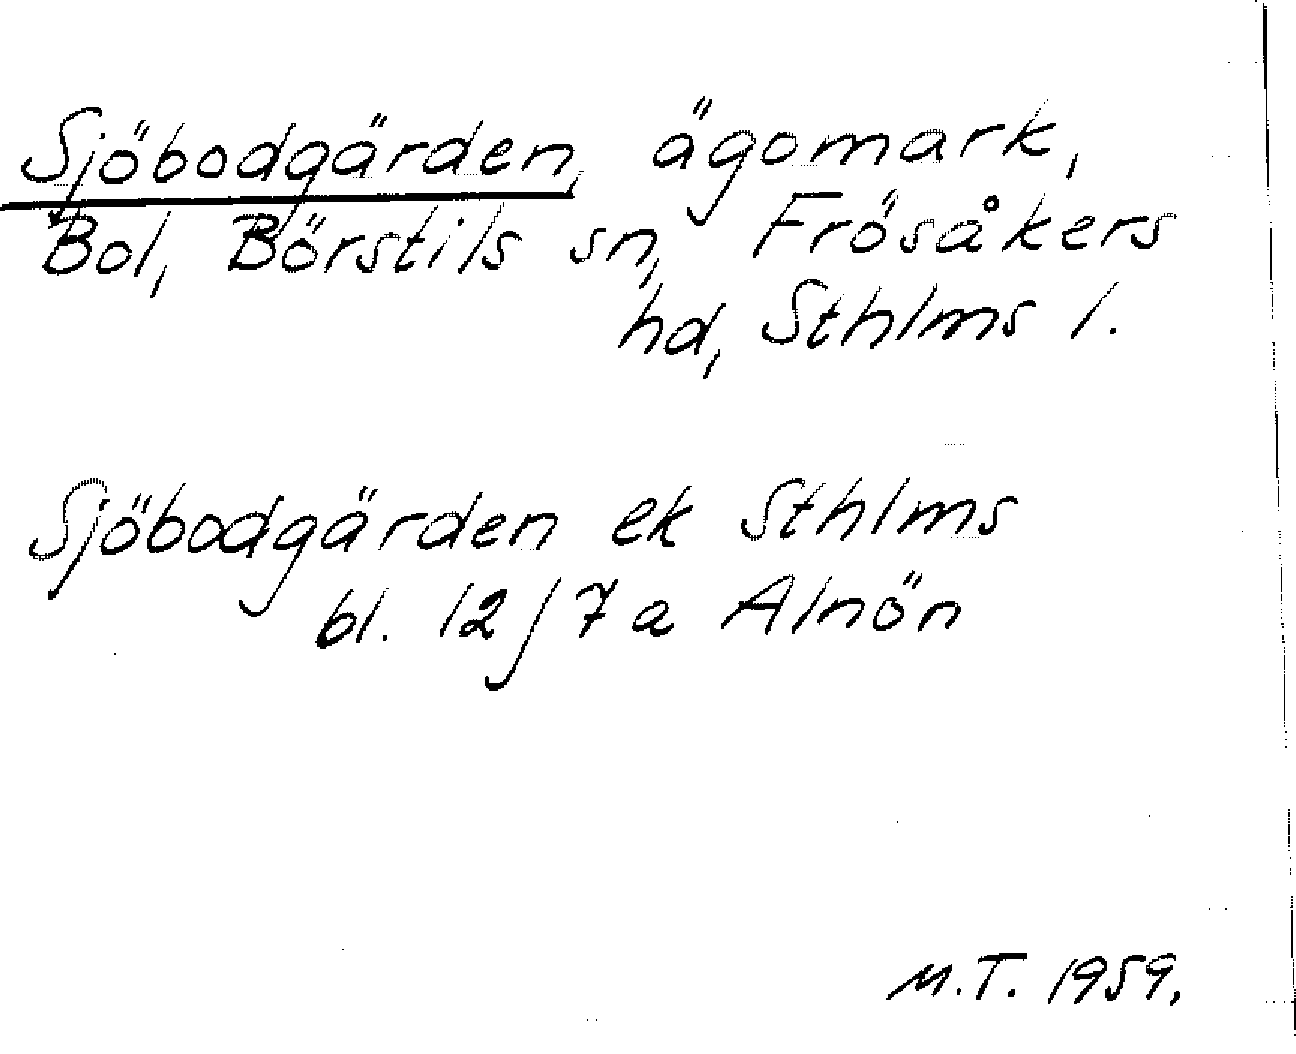 Sjöbodgärden, ägomark,
Bol, Börstils sn, Frösåkers
hd, Sthlms l.
Sjöbodgärden ek Sthlms
bl. 12j7a Alnön
M.T. 1959.